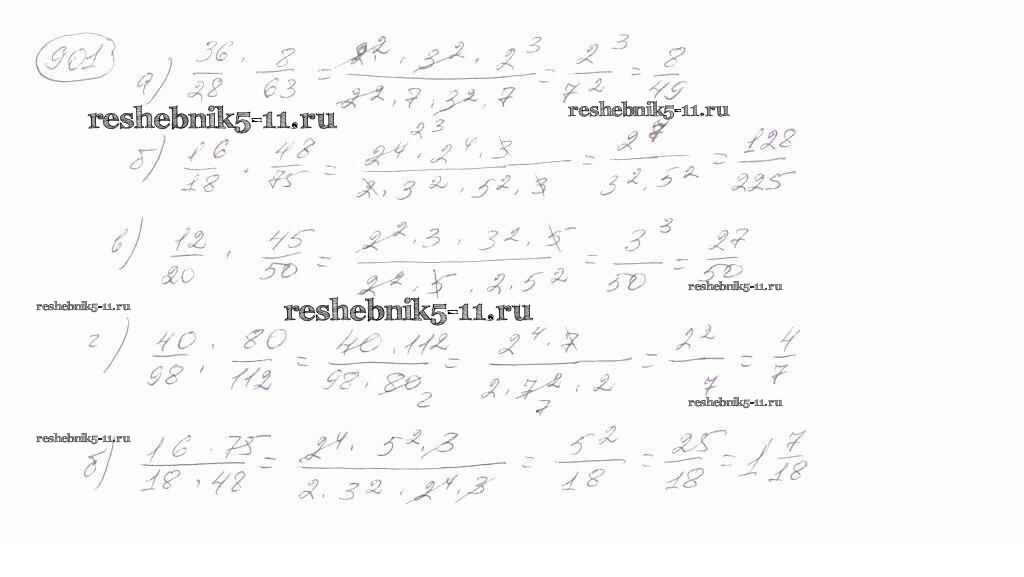 901
а) 36/28 · 8/63 = 2² · 3² · 2³ / 2² · 7 · 3² · 7 = 2³/7² = 8/49
reshebnik5-11.ru reshebnik5-11.ru
б) 16/18 · 48/75 = 2⁴ · 2⁴ · 3 / 2 · 3² · 5² · 3 = 2⁷/3² · 5² = 128/225
в) 12/20 · 45/50 = 2² · 3 · 3² · 5 / 2² · 5 · 2 · 5² = 3³/50 = 27/50
reshebnik5-11.ru reshebnik5-11.ru reshebnik5-11.ru
г) 40/98 : 80/112 = 40 · 112 / 98 · 80 = 2⁴ · 7 / 2 · 7² · 2 = 2²/7 = 4/7
reshebnik5-11.ru reshebnik5-11.ru
б) 16 · 75 / 18 · 48 = 2⁴ · 5² · 3 / 2 · 3² · 2⁴ · 3 = 5²/18 = 25/18 = 1 7/18